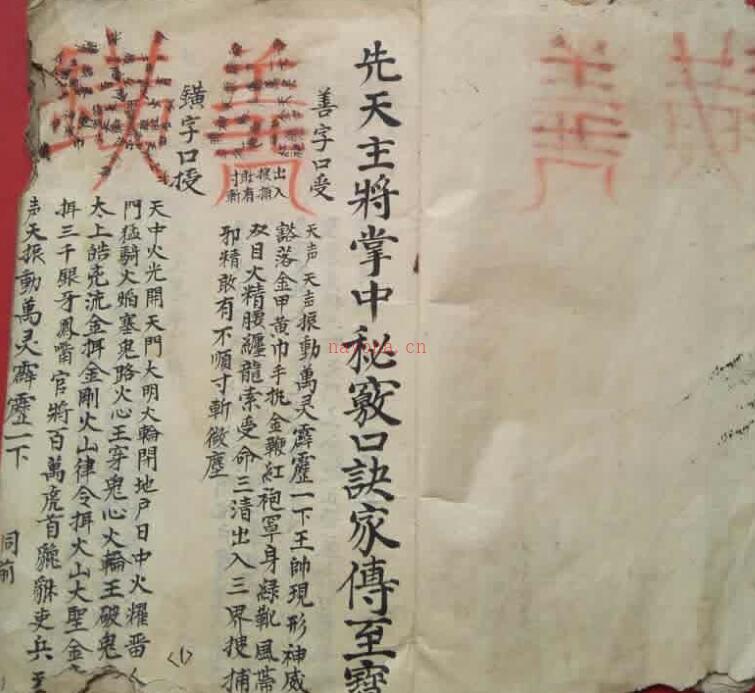 先天主將掌中秘竅口訣家傳至寶
善字口受
天声天声振動萬灵霹靂一下王帥現形神威
豁落金甲黃巾手执金鞭紅袍罩身綠靴風帶
双目火精腰纏龍索受命三清出入三界搜捕
邪精敢有不順寸斬微塵
出入
搜捕
敢有
寸斬
鐄字口授
天中火光開天門大明火輪開地戶日中火耀番
門猛騎火焰塞鬼路火心王穿鬼心火輪王破鬼
太上皓壳流金揖金剛火山律令揖火山大聖金
揖三千銀牙鳳嘴官將百萬虎首貔貅吏兵
声天振動萬灵霹靂一下
同前
善
鐄
nayona.cn